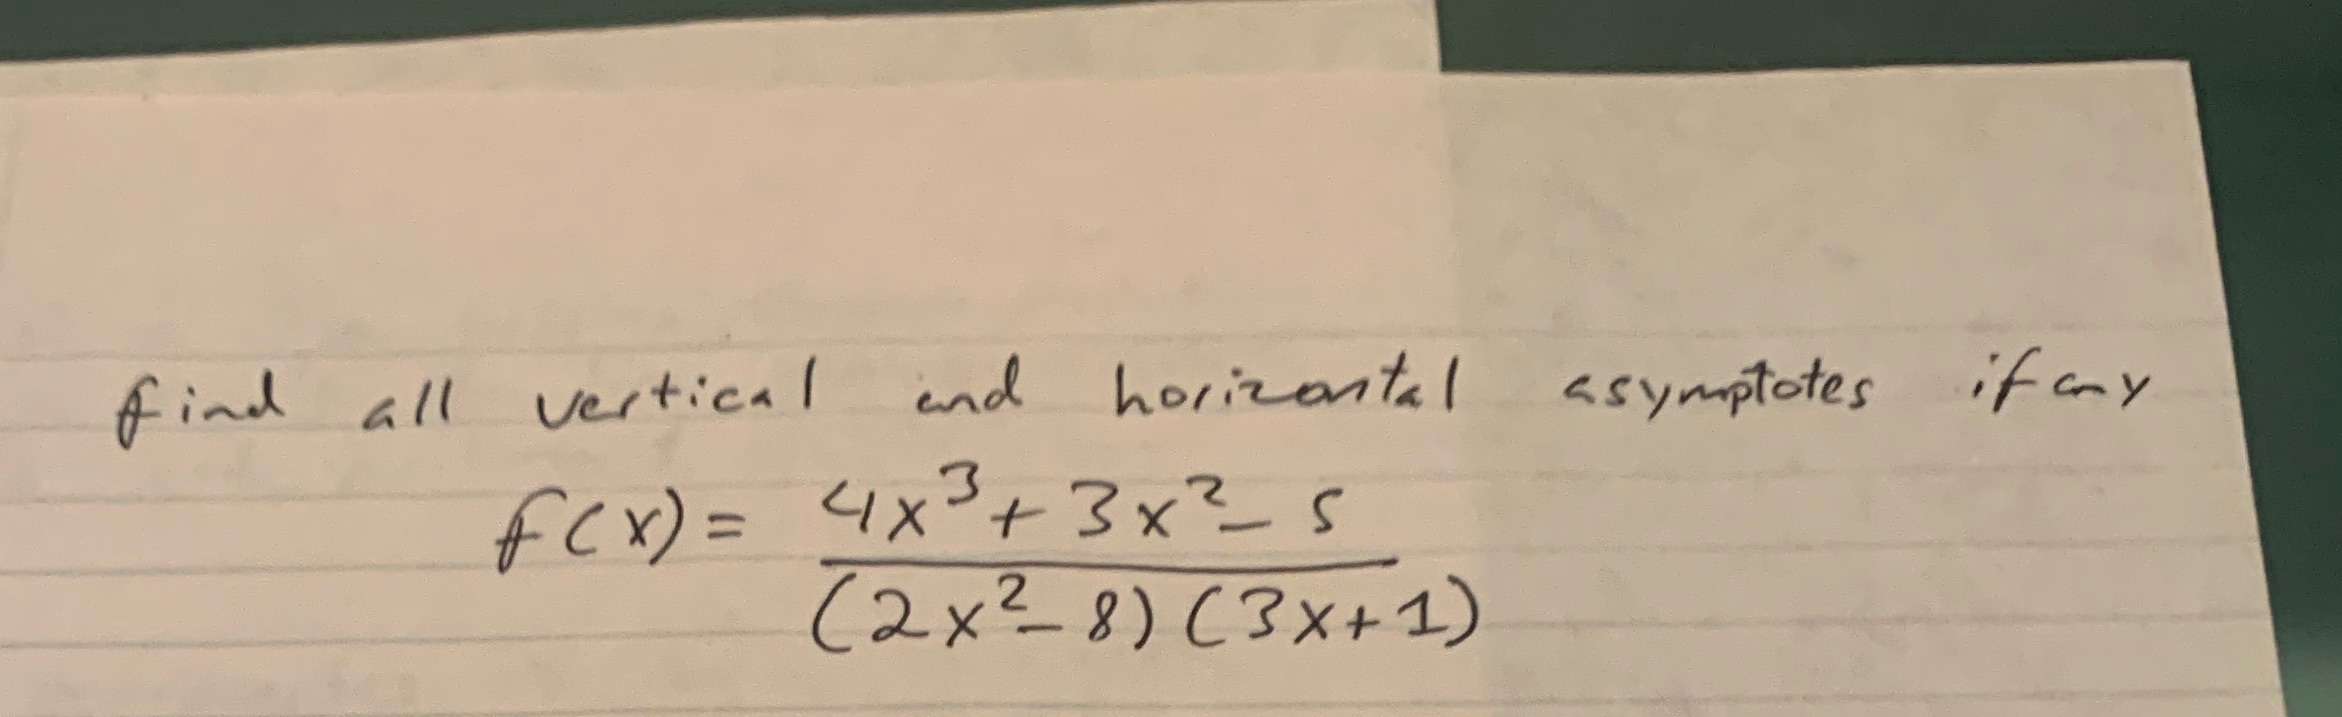 find all vertical and horizontal asymptotes if any
f(x) = 4x³ + 3x² - 5
(2x² - 8) (3x + 1)